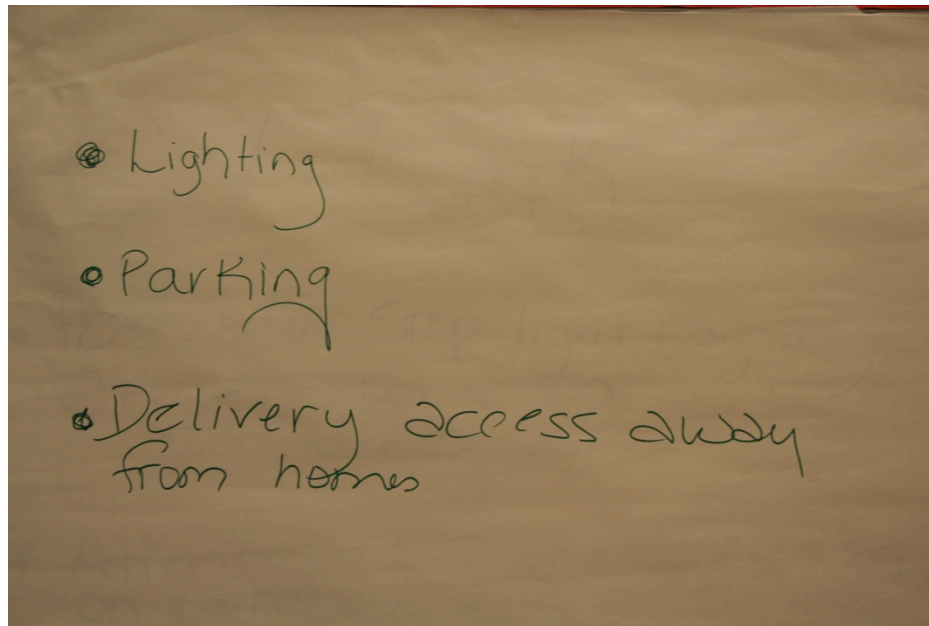 • Lighting
• Parking
• Delivery access away
from homes